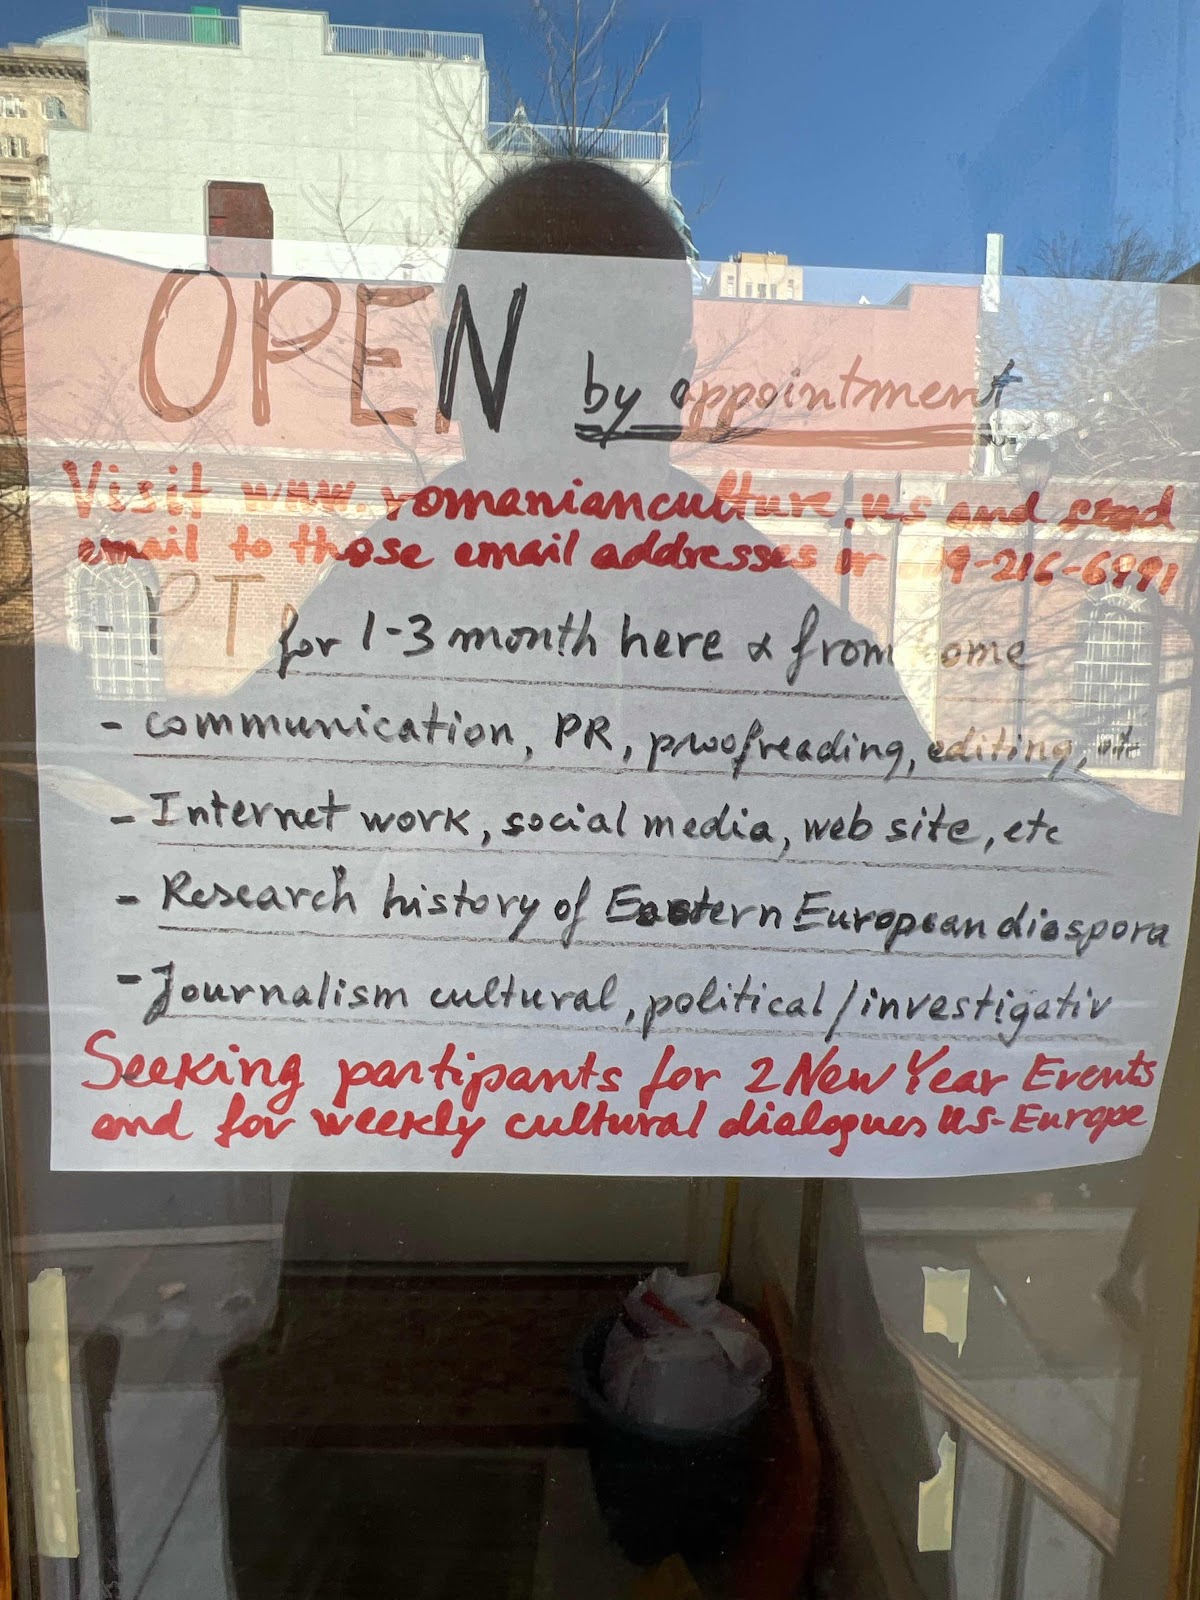 OPEN by appointment
Visit www.romanianculture.us and send
email to those email addresses or 9-216-6991
- PT for 1-3 month here & from ome
- communication, PR, proofreading, editing, etc
- Internet work, social media, web site, etc
- Research history of Eastern European diaspora
- Journalism cultural, political/investigativ
Seeking participants for 2 New Year Events
and for weekly cultural dialogues US-Europe